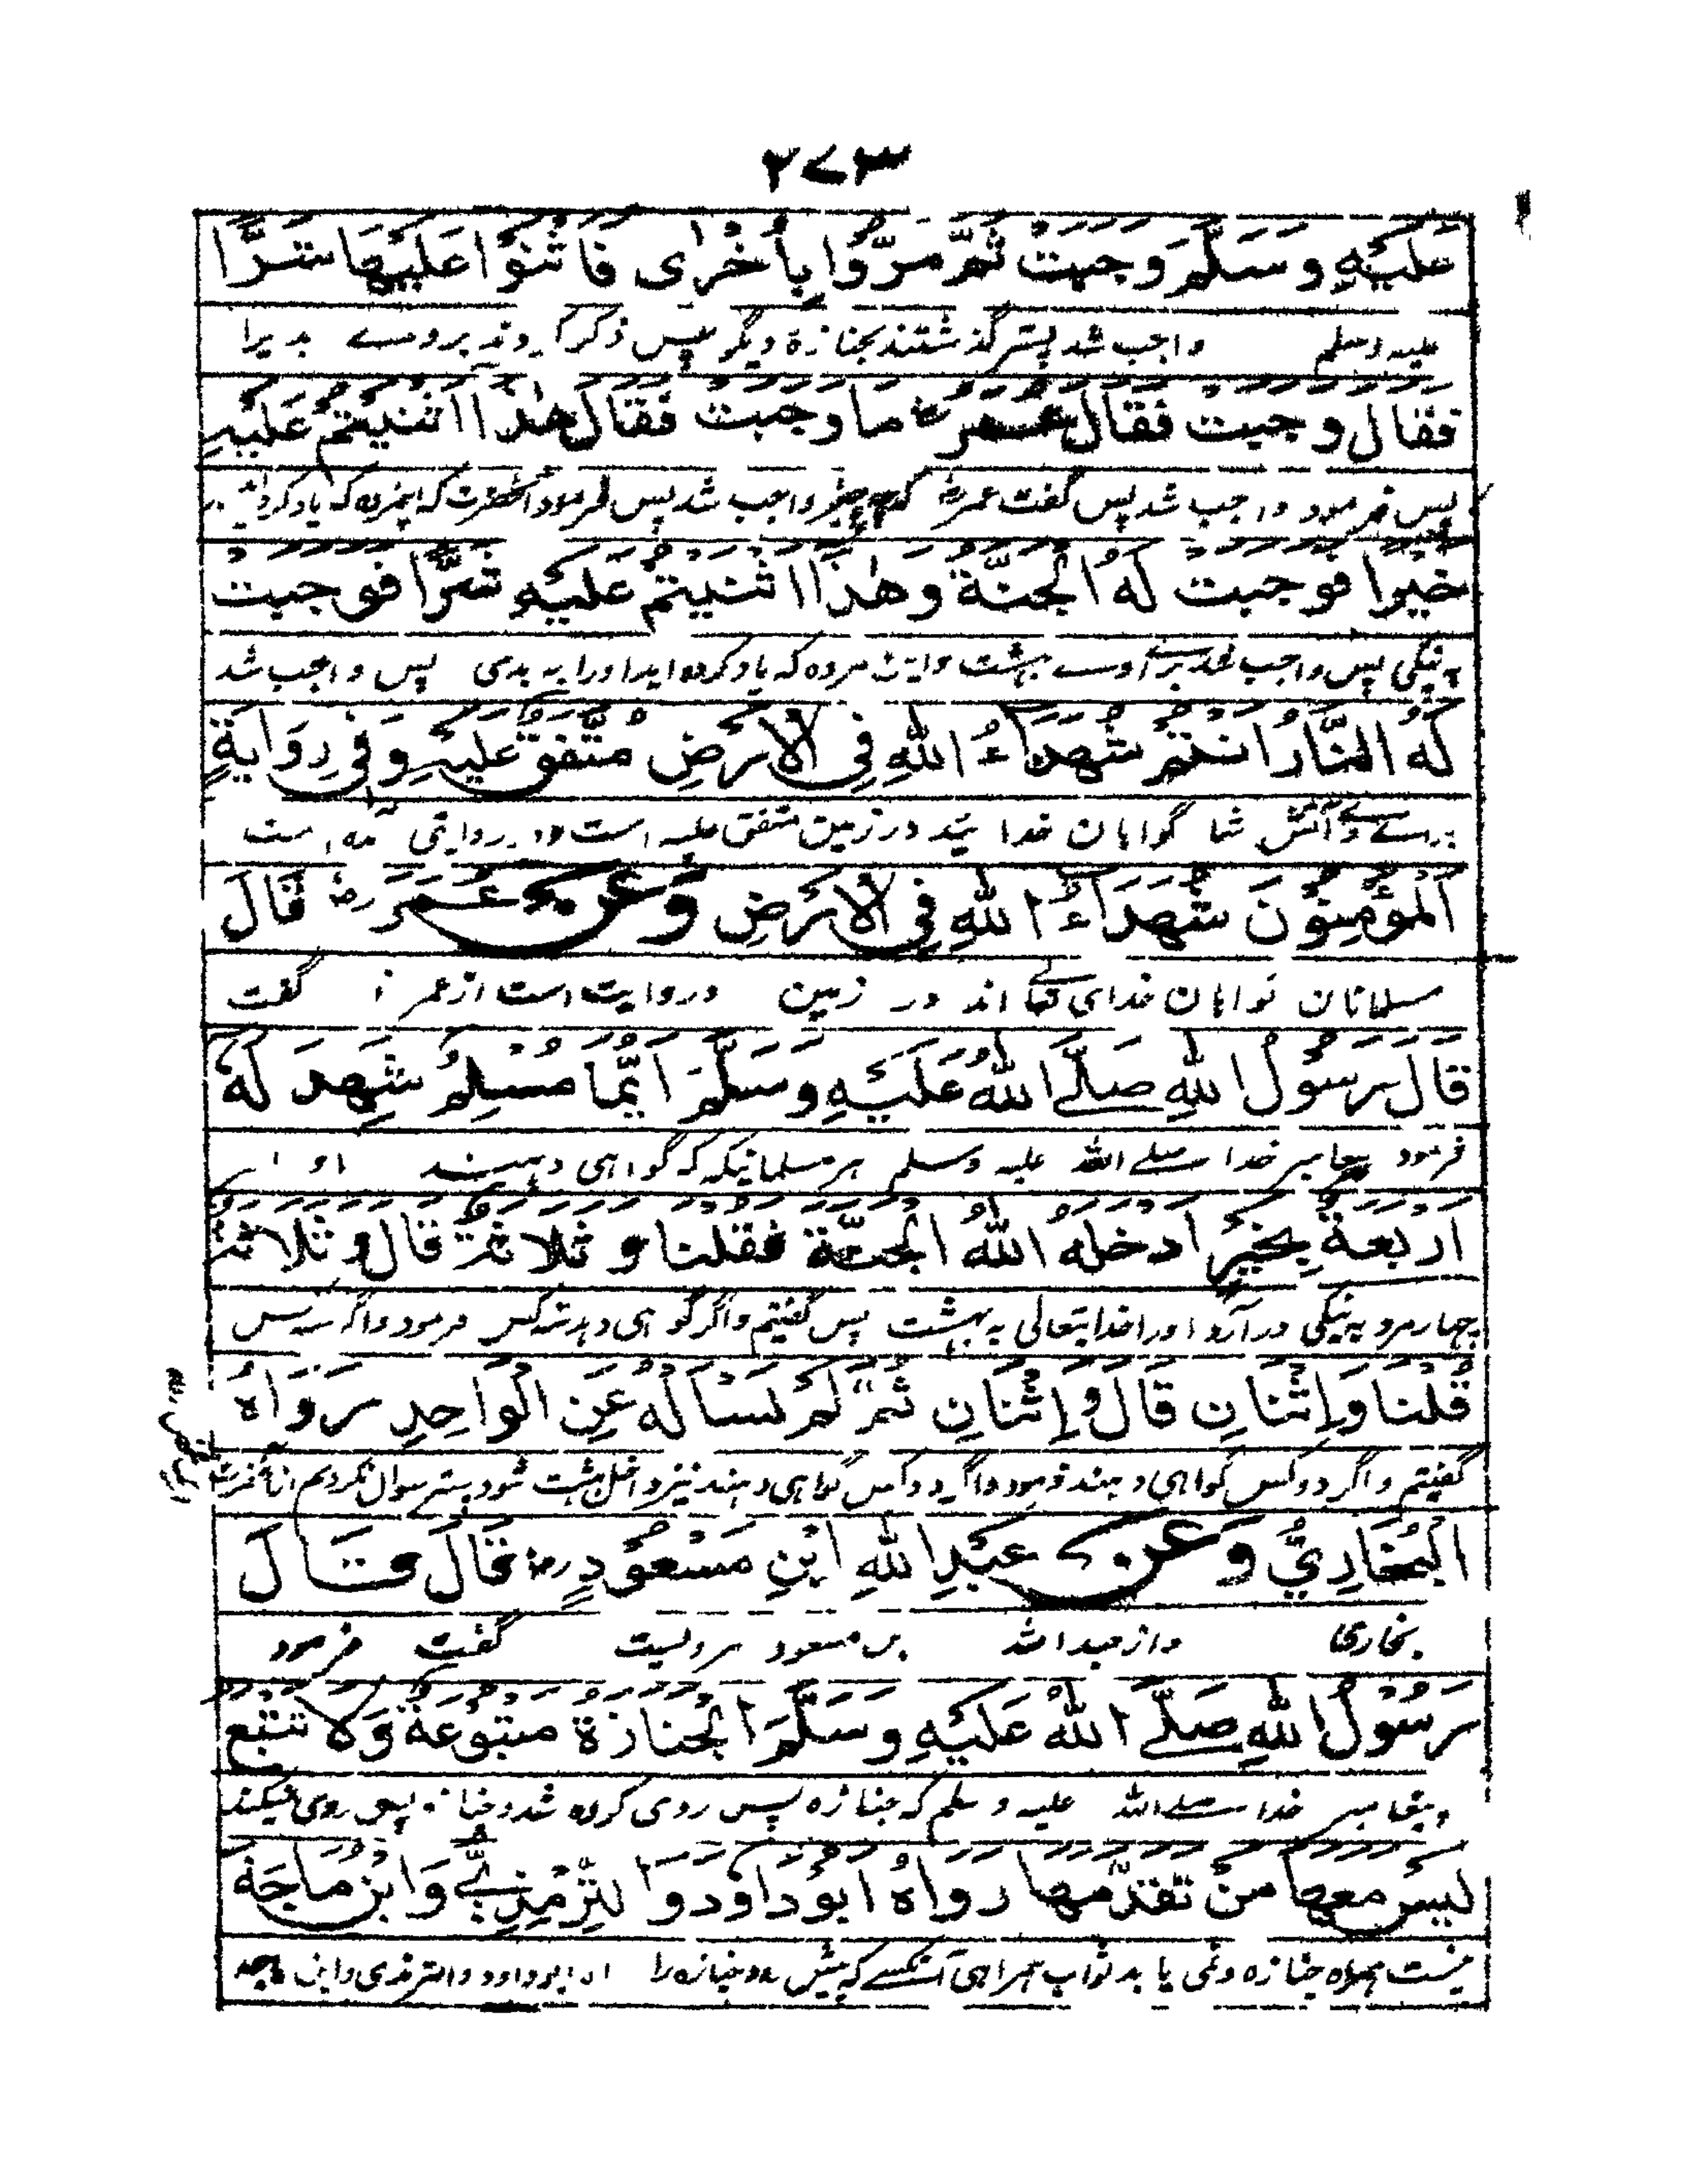 ۲۷۳
عَلَيْهِ وَسَلَّمَ وَجَبَتْ ثُمَّ مَرُّوْا بِأُخْرٰى فَاَثْنَوْا عَلَيْهَا شَرًّا
علیه وسلم واجب شد پستر گذشتند بجنازه دیگر پس ذکر کردند بر وے بدیرا
فَقَالَ وَجَبَتْ فَقَالَ عُمَرُ رض مَا وَجَبَتْ فَقَالَ هٰذَا اَثْنَيْتُمْ عَلَيْهِ
پس فرمود واجب شد پس گفت عمر رض که چه چیز واجب شد پس فرمود آنحضرت که اینمرده که یاد کردید
خَيْرًا فَوَجَبَتْ لَهُ الْجَنَّةُ وَهٰذَا اَثْنَيْتُمْ عَلَيْهِ شَرًّا فَوَجَبَتْ
به نیکی پس واجب شد برای اوے بهشت واین مرده که یاد کرده اید اورا به بدی پس واجب شد
لَهُ النَّارُ اَنْتُمْ شُهَدَاءُ اللّٰهِ فِى الْاَرْضِ مُتَّفَقٌ عَلَيْهِ وَفِىْ رِوَايَةٍ
آتش شما گواهان خدا ئید در زمین متفق علیه است و در روایتی است
اَلْمُؤْمِنُوْنَ شُهَدَاءُ اللّٰهِ فِى الْاَرْضِ وَعَنْ عُمَرَ رض قَالَ
مسلمانان گواهان خدای تعالے اند در زمین و روایت است از عمر گفت
قَالَ رَسُوْلُ اللّٰهِ صَلَّے اللّٰهُ عَلَيْهِ وَسَلَّمَ اَيُّمَا مُسْلِمٍ شَهِدَ لَهٗ
فرمود پیغامبر خدا صلے الله علیه وسلم هر مسلمانیکه که گواهی دهند
اَرْبَعَةٌ بِخَيْرٍ اَدْخَلَهُ اللّٰهُ الْجَنَّةَ فَقُلْنَا وَثَلَاثَةٌ قَالَ وَثَلَاثَةٌ
چهار مرد به نیکی در آرد اورا خدایتعالی به بهشت پس گفتیم واگر گواهی دهد سه کس فرمود واگر سه کس
قُلْنَا وَاِثْنَانِ قَالَ وَاِثْنَانِ ثُمَّ لَمْ نَسْاَلْهُ عَنِ الْوَاحِدِ رَوَاهُ
گفتیم واگر دو کس گواهی دهند فرمود واگر دو کس گواهی دهند نیز داخل بهشت شود پستر سوال نکردیم از آنحضرت
الْبُخَارِىُّ وَعَنْ عَبْدِ اللّٰهِ ابْنِ مَسْعُوْدٍ رض قَالَ قَالَ
بخاری واز عبدالله بن مسعود مرویست گفت فرمود
رَسُوْلُ اللّٰهِ صَلَّے اللّٰهُ عَلَيْهِ وَسَلَّمَ الْجَنَازَةُ مَتْبُوْعَةٌ وَلَا تَتْبَعُ
پیغامبر خدا صلے الله علیه وسلم که جنازه پس روی کرده شد وجنازه پس روی نمیکند
لَيْسَ مَعَهَا مَنْ تَقَدَّمَهَا رَوَاهُ اَبُوْدَاوٗدَ وَالتِّرْمِذِىُّ وَابْنُ مَاجَةَ
نیست همراه جنازه ونمی یابد ثواب همراهی آنکسے که پیش رود جنازه را ابوداود والترمذی وابن ماجه